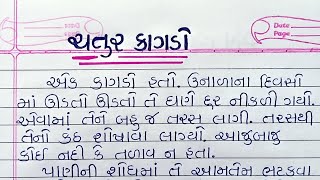 Date
Page
ચતુર કાગડો
એક કાગડો હતો. ઉનાળાના દિવસો
માં ઊડતો ઊડતો તે ઘણે દૂર નીકળી ગયો.
એવામાં તેને બહુ જ તરસ લાગી. તરસથી
તેનો કંઠ શોષાવા લાગ્યો. આજુબાજુ
કોઈ નદી કે તળાવ ન હતા.
પાણીની શોધમાં તે આમતેમ ભટકવા